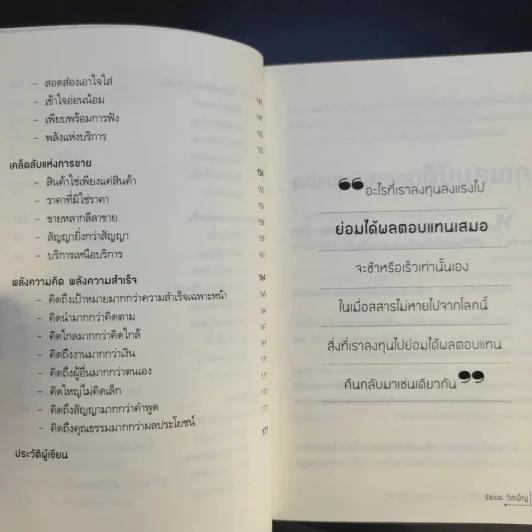 - สอดส่องเอาใจใส่
- เข้าใจอ่อนน้อม
- เพียบพร้อมการฟัง
- พลังแห่งบริการ
เคล็ดลับแห่งการขาย 154
- สินค้าใช่เพียงแต่สินค้า
- ราคาที่มิใช่ราคา
- ขายหลากลีลาขาย
- สัญญายิ่งกว่าสัญญา 159
- บริการเหนือบริการ
พลังความคิด พลังความสำเร็จ 164
- คิดถึงเป้าหมายมากกว่าความสำเร็จเฉพาะหน้า 165
- คิดนำมากกว่าคิดตาม
- คิดไกลมากกว่าคิดใกล้
- คิดถึงงานมากกว่าเงิน
- คิดถึงผู้อื่นมากกว่าตนเอง
- คิดใหญ่ไม่คิดเล็ก
- คิดถึงสัญญามากกว่าคำพูด
- คิดถึงคุณธรรมมากกว่าผลประโยชน์ 177
ประวัติผู้เขียน
❝อะไรที่เราลงทุนลงแรงไป
ย่อมได้ผลตอบแทนเสมอ
จะช้าหรือเร็วเท่านั้นเอง
ในเมื่อสสารไม่หายไปจากโลกนี้
สิ่งที่เราลงทุนไปย่อมได้ผลตอบแทน
คืนกลับมาเช่นเดียวกัน❞